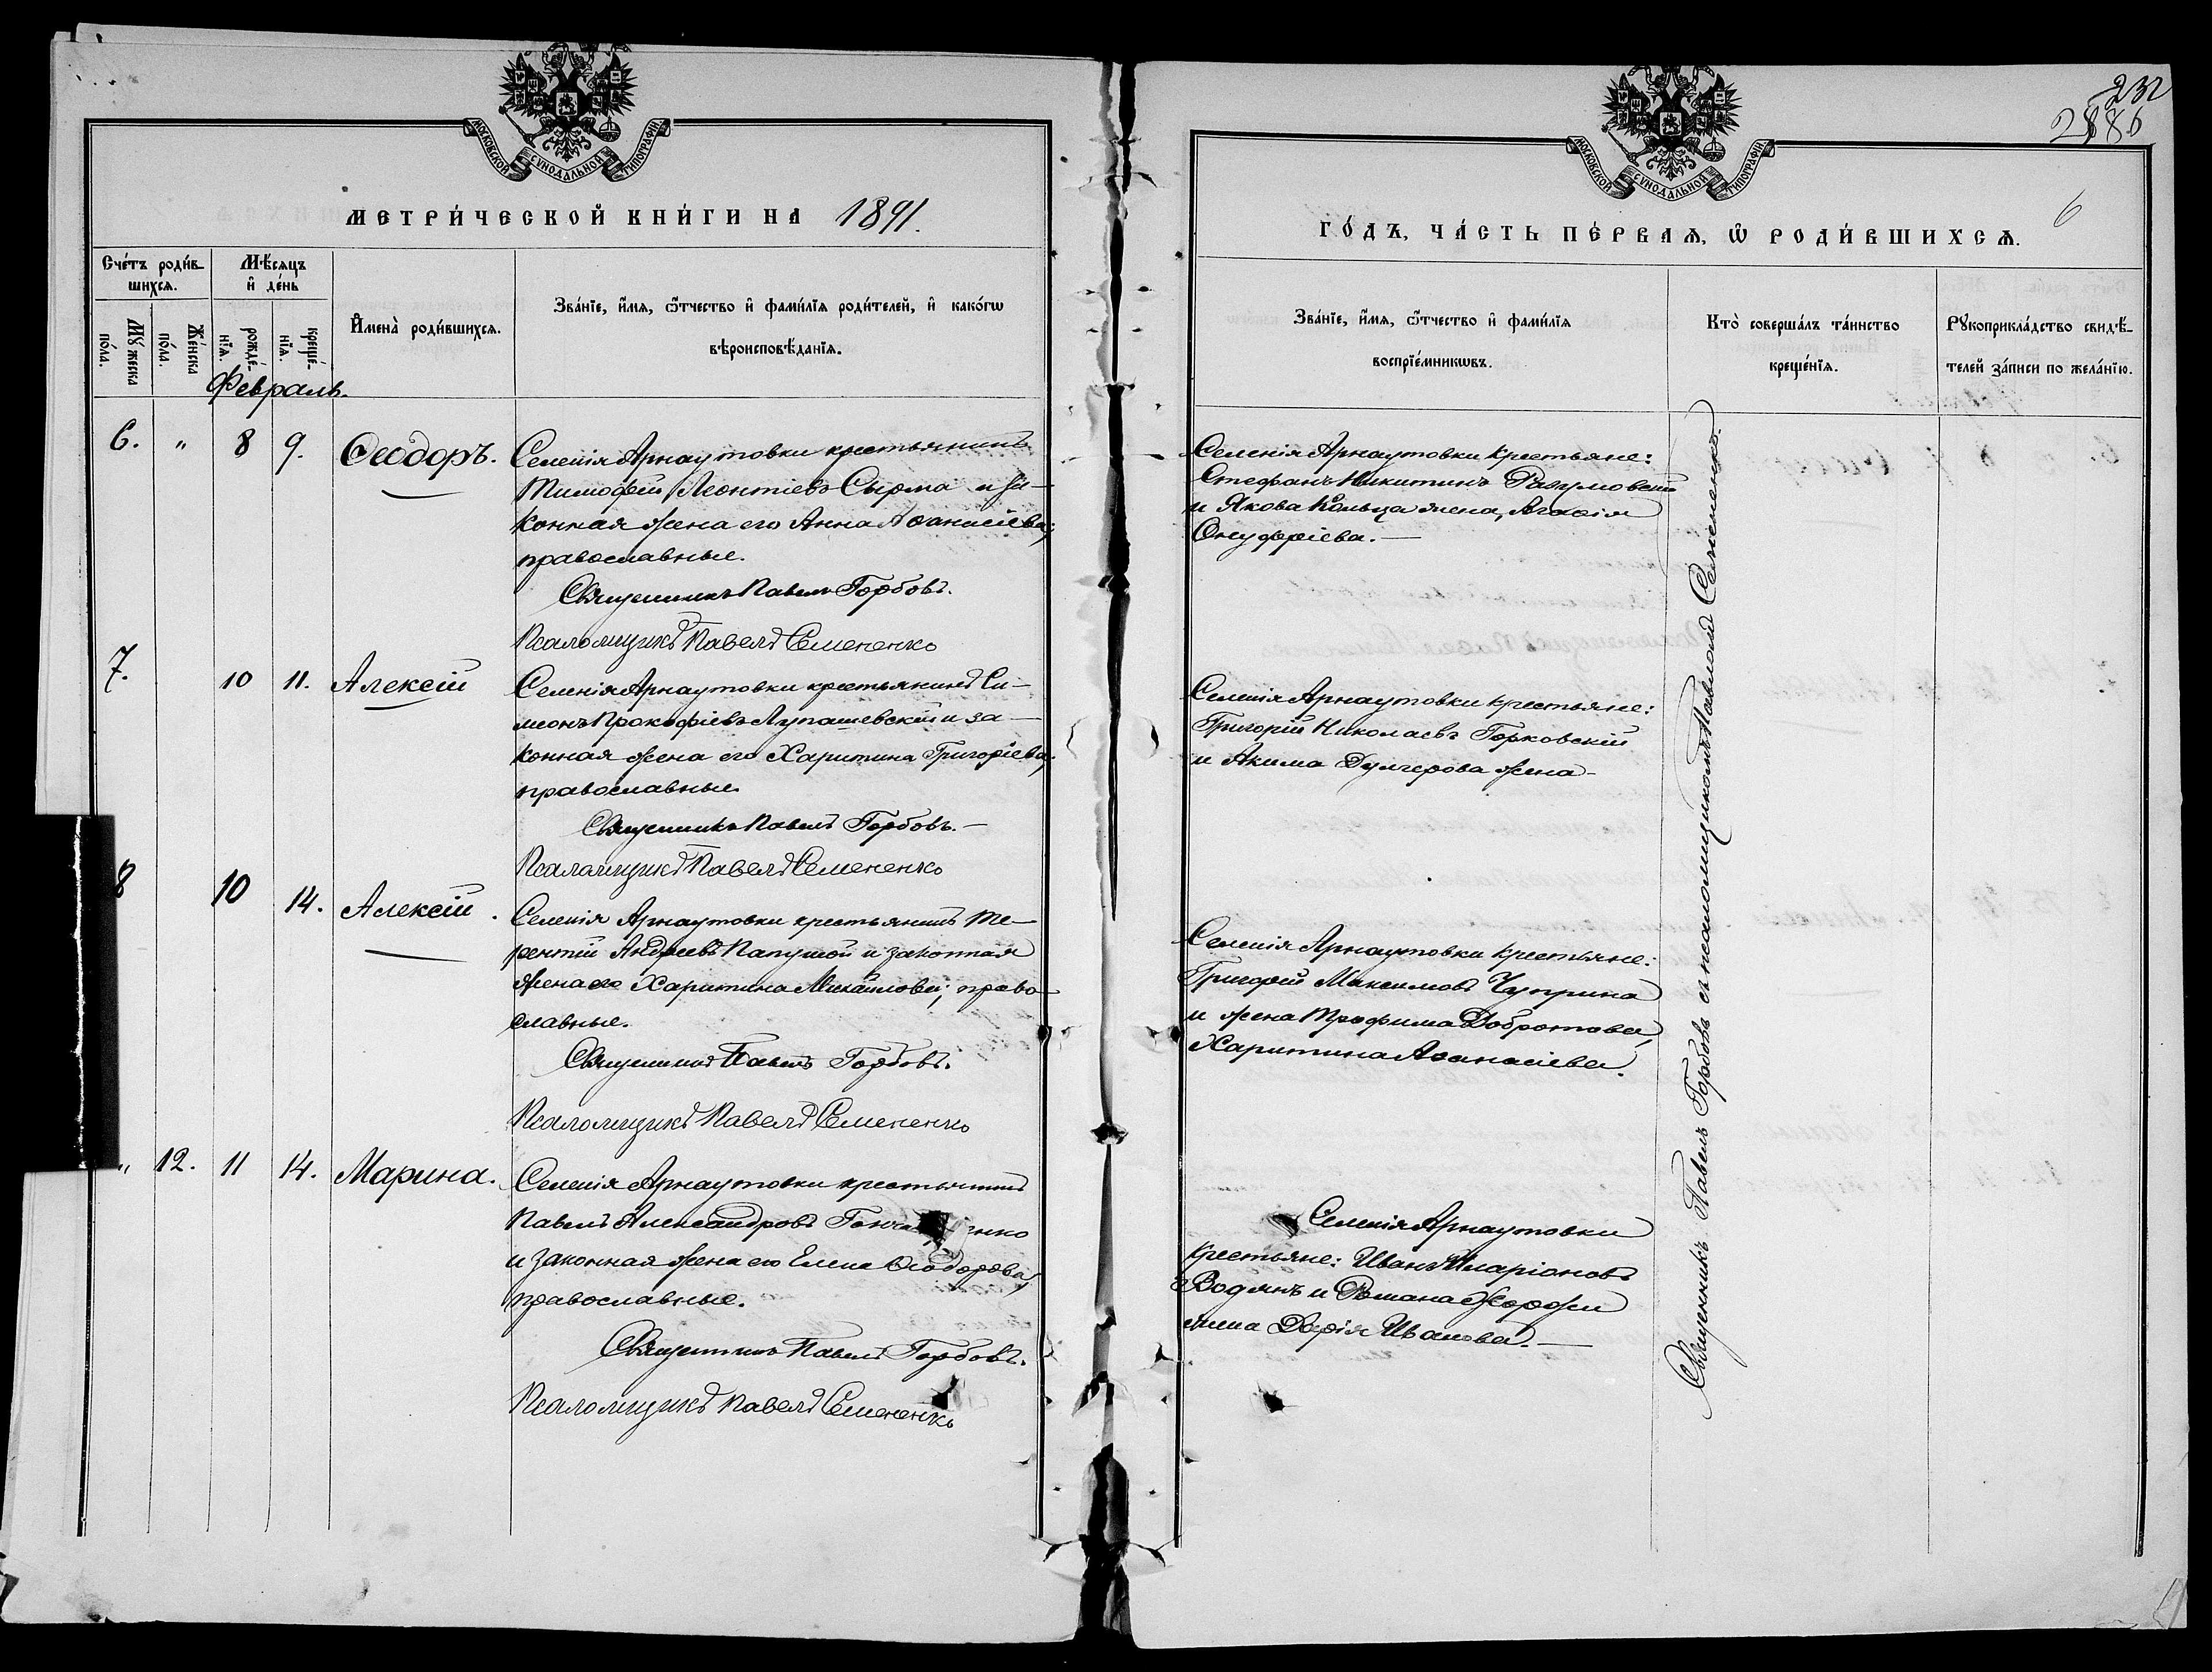 МОСКОВСКОЙ СѴНОДАЛЬНОЙ ТИПОГРАФІИ.
МЕТРИ́ЧЕСКОЙ КНИ́ГИ НА 1891.
Сче́тъ роди́в-
шихсѧ.
Мѣ́сѧцъ
и҆ де́нь
Мꙋ́жеска
по́ла.
Же́нска
по́ла.
рожде́-
нїѧ.
креще́-
нїѧ.
И҆мена̀ роди́вшихсѧ.
Зва́нїе, и҆́мѧ, ѻ҆́тчество и҆ фами́лїѧ роди́телей, и҆ како́гѡ
вѣроисповѣ́данїѧ.
Февраль.
6. " 8 9. Ѳеодоръ.
Селенія Арнаутовки крестьянинъ
Тимофей Леонтіевъ Сырма и за-
конная жена его Анна Аѳанасіева;
православные.
Священникъ Павелъ Горбовъ.
Псаломщикъ Павелъ Семененко
7. 10 11. Алексій
Селенія Арнаутовки крестьянинъ Си-
меонъ Прокофіевъ Лупашевскій и за-
конная жена его Харитина Григоріева;
православные.
Священникъ Павелъ Горбовъ.
Псаломщикъ Павелъ Семененко
8 10 14. Алексій.
Селенія Арнаутовки крестьянинъ Те-
рентій Андреевъ Папушой и законная
жена его Харитина Михайлова; право-
славные.
Священникъ Павелъ Горбовъ.
Псаломщикъ Павелъ Семененко
" 12. 11 14. Марина.
Селенія Арнаутовки крестьянинъ
Павелъ Александровъ
и законная жена его Елена Ѳеодорова,
православные.
Священникъ Павелъ Горбовъ.
Псаломщикъ Павелъ Семененко
232
6
МОСКОВСКОЙ СѴНОДАЛЬНОЙ ТИПОГРАФІИ.
ГО́ДЪ, ЧА́СТЬ ПЕ́РВАѦ, Ѡ҆ РОДИ́ВШИХСѦ.
Зва́нїе, и҆́мѧ, ѻ҆́тчество и҆ фами́лїѧ
воспрїе́мникѡвъ.
Кто̀ соверша́лъ та́инство
креще́нїѧ.
Рꙋкоприкла́дство свидѣ́-
телей за́писи по жела́нїю.
Селенія Арнаутовки крестьяне:
Стефанъ Никитинъ Разумовскій
и Якова Кольца жена, Агафія
Онуфріева.
Селенія Арнаутовки крестьяне:
Григорій Николаевъ Горковскій
и Акима Дулгерова жена
Селенія Арнаутовки крестьяне:
Григорій Максимовъ Чуприна
и жена Трофима Добротова,
Харитина Аѳанасіева.
Селенія Арнаутовки
крестьяне: Иванъ Иларіоновъ
Водянъ и Романа
жена Дарія Иванова.
Священникъ Павелъ Горбовъ съ псаломщикомъ Павломъ Семененко.